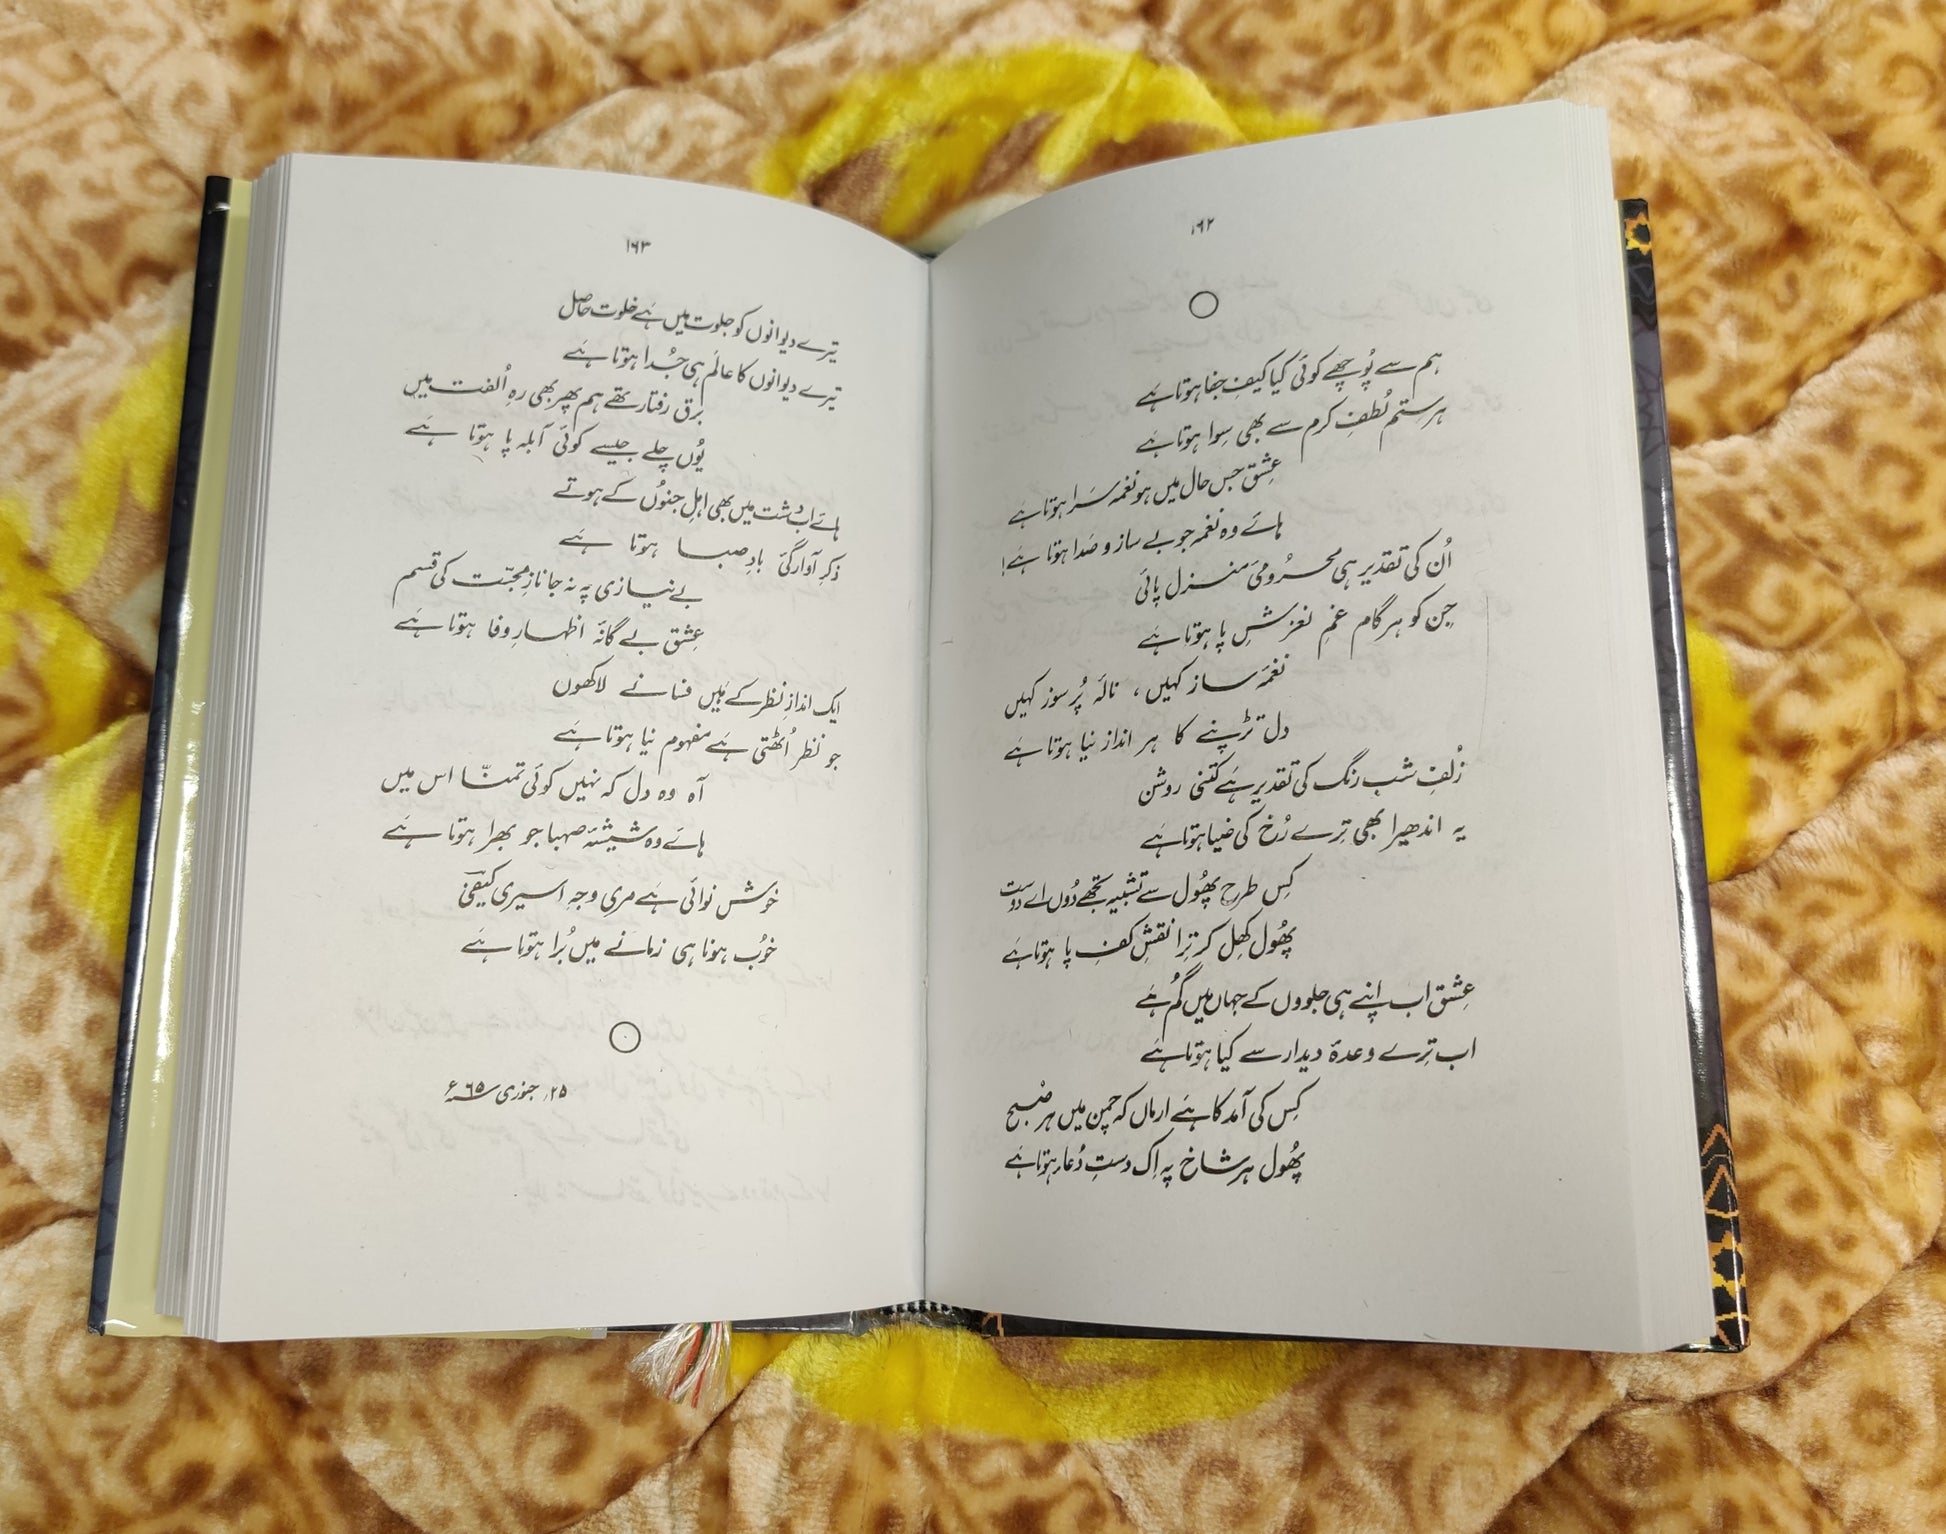 ۱۶۲
ہم سے پُوچھے کوئی کیا کیفِ جفا ہوتا ہَے
ہر ستم لُطفِ کرم سے بھی سِوا ہوتا ہَے
عِشق جس حال میں ہو نغمہ سَرا ہوتا ہَے
ہائے وہ نغمہ جو بے ساز و صَدا ہوتا ہَے!
اُن کی تقدیر ہی محرُومیِٔ منزل پائی
جِن کو ہر گام غمِ لغزشِ پا ہوتا ہَے
نغمَہ ساز کہیں ، نالَہ پُرسوز کہیں
دل تڑپنے کا ہر انداز نیا ہوتا ہَے
زُلفِ شب رنگ کی تقدیر ہَے کتنی روشن
یہ اندھیرا بھی تِرے رُخ کی ضیا ہوتا ہَے
کِس طرح پھُول سے تشبیہ تجھے دُوں اے دوست
پھُول کھِل کر تِرا نقشِ کفِ پا ہوتا ہَے
عِشق اب اپنے ہی جلووں کے جہاں میں گُم ہَے
اب تِرے وعدۂ دیدار سے کیا ہوتا ہَے
کِس کی آمد کا ہَے ارماں کہ چمن میں ہر صُبح
پھُول ہر شاخ پہ اِک دستِ دُعا ہوتا ہَے
۱۶۳
تیرے دیوانوں کو جلوت میں ہَے خلوت حاصل
تیرے دیوانوں کا عالَم ہی جُدا ہوتا ہَے
برق رفتار تھے ہم پھر بھی رہِ اُلفت میں
یُوں چلے جیسے کوئی آبلہ پا ہوتا ہَے
ہائے اب دشت میں بھی اہلِ جنوُں کے ہوتے
ذکرِ آوارگیٔ بادِ صبا ہوتا ہَے
بے نیازی پہ نہ جا نازِ محبّت کی قسم
عِشق بے گانَہ اظہارِ وفا ہوتا ہَے
ایک اندازِ نظر کے ہَیں فسانے لاکھوں
جو نظر اُٹھتی ہَے مفہوم نیا ہوتا ہَے
آہ وہ دل کہ نہیں کوئی تمنّا اس میں
ہائے وہ شیشۂ صہبا جو بھرا ہوتا ہَے
خوش نوائی ہَے مری وجہِ اسیری کیفیؔ
خوُب ہونا ہی زمانے میں بُرا ہوتا ہَے
۲۵؍ جنوری ۶۵ء